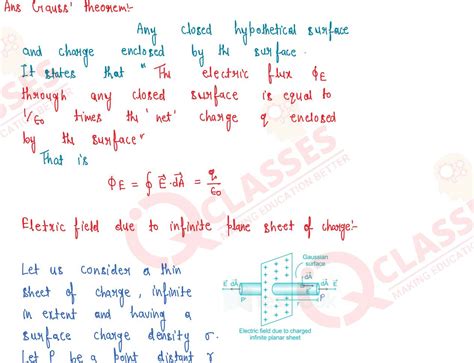 Ans Gauss' theorem:-
Any closed hypothetical surface
and charge enclosed by the surface.
It states that "The electric flux ΦE
through any closed surface is equal to
1/ε0 times the 'net' charge q enclosed
by the surface"
That is
ΦE = ∮ E⃗.dA⃗ = q/ε0
Eletric field due to infinite plane sheet of charge:-
Let us consider a thin
sheet of charge, infinite
in extent and having a
surface charge density σ.
Let P be a point distant r
Gaussian
surface
E dA
P'
r
dA E
P
Electric field due to charged
infinite planar sheet
CLASSES
MAKING EDUCATION BETTER